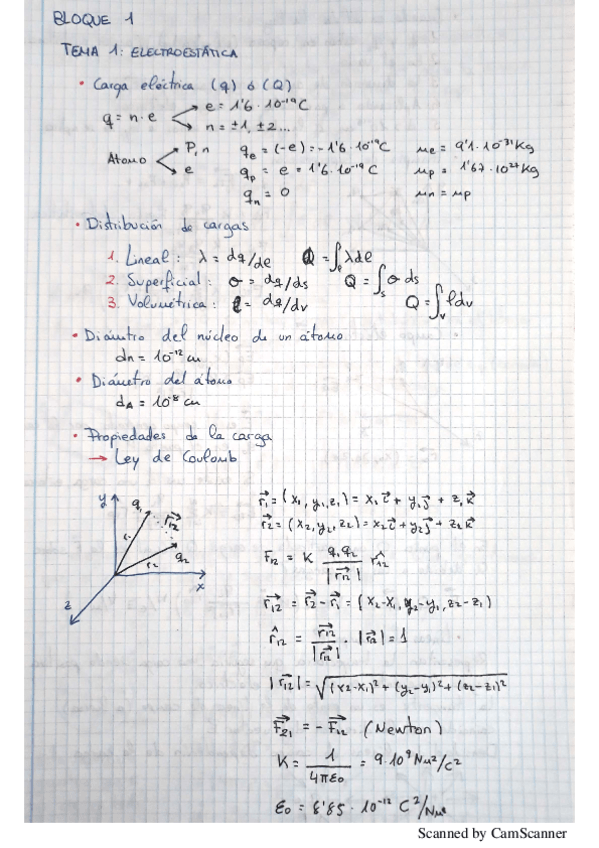 BLOQUE 1
TEMA 1: ELECTROESTÁTICA
• Carga eléctrica (q) ó (Q)
q = n·e
e = 1'6·10⁻¹⁹C
n = ±1, ±2...
Átomo
P, n
e
qe = (-e) = -1'6·10⁻¹⁹C
me = 9'1·10⁻³¹Kg
qp = e = 1'6·10⁻¹⁹C
mp = 1'67·10²⁷Kg
qn = 0
mn = mp
• Distribución de cargas
1. Lineal: λ = dq/de Q = ∫e λde
2. Superficial: σ = dq/ds Q = ∫s σ ds
3. Volumétrica: ρ = dq/dv Q = ∫v ρdv
• Diámetro del núcleo de un átomo
dn = 10⁻¹² cm
• Diámetro del átomo
dA = 10⁻⁸ cm
• Propiedades de la carga
→ Ley de Coulomb
y
q1
r12
r1
q2
r2
x
z
r⃗1 = (x1, y1, z1) = x1 i⃗ + y1 j⃗ + z1 k⃗
r⃗2 = (x2, y2, z2) = x2 i⃗ + y2 j⃗ + z2 k⃗
F12 = K q1q2/|r⃗12| r̂12
r⃗12 = r⃗2 - r⃗1 = (x2-x1, y2-y1, z2-z1)
r̂12 = r⃗12/|r⃗12| · |r⃗12| = 1
|r⃗12| = √(x2-x1)² + (y2-y1)² + (z2-z1)²
F⃗21 = -F⃗12 (Newton)
K = 1/4πε0 = 9·10⁹ Nm²/C²
ε0 = 8'85·10⁻¹² C²/Nm²
Scanned by CamScanner